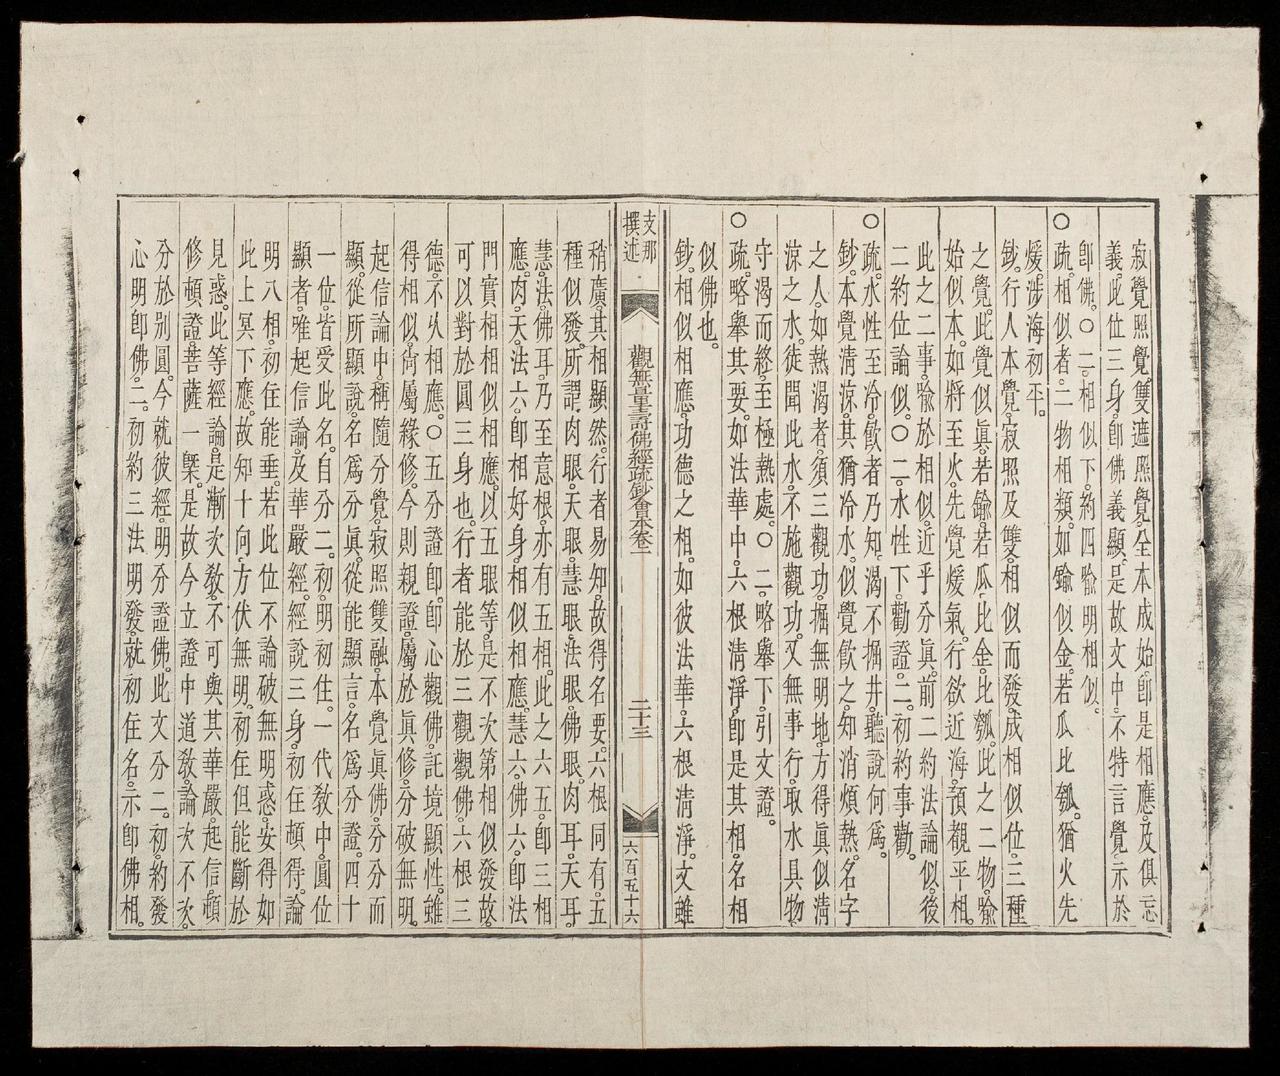 寂覺照覺雙遮照覺。全本成始。卽是相應。及俱忘
義。此位三身卽佛義顯。是故文中。不特言覺。示於
卽佛。○二。相似下。約四喻明相似。
○疏。相似者。二物相類。如鍮似金。若瓜比瓠。猶火先
煖。涉海初平。
鈔。行人本覺。寂照及雙。相似而發。成相似位。三種
之覺。此覺似眞。若鍮。若瓜。比金。比瓠。此之二物。喻
始似本。如將至火。先覺煖氣。行欲近海。預觀平相。
此之二事。喻於相似。近乎分眞。前二約法論似。後
二約位論似。○二。水性下。勸證。二。初約事勸。
○疏。水性至冷。飮者乃知。渴不掘井。聽說何爲。
鈔。本覺淸涼。其猶冷水。似覺飮之。知消煩熱。名字
之人。如熱渴者。須三觀功。掘無明地。方得眞似淸
涼之水。徒聞此水。不施觀功。又無事行。取水具物
守渴而終。至極熱處。○二。略舉下。引文證。
○疏。略舉其要。如法華中。六根淸淨。卽是其相。名相
似佛也。
鈔。相似相應。功德之相。如彼法華。六根淸淨。文雖
支那
撰述
觀無量壽佛經疏鈔會本卷二
二十三
六百五十六
稍廣。其相顯然。行者易知。故得名要。六根同有。五
種似發。所謂肉眼。天眼。慧眼。法眼。佛眼。肉耳。天耳。
慧。法。佛耳。乃至意根。亦有五相。此之六五。卽三相
應。肉。天。法六。卽相好身。相似相應。慧六。佛六。卽法
門實相。相似相應。以五眼等。是不次第。相似發故。
可以對於圓三身也。行者能於三觀觀佛。六根三
德。不久相應。○五分證卽。卽心觀佛。託境顯性。雖
得相似。尙屬緣修。今則親證。屬於眞修。分破無明。
起信論中。稱隨分覺。寂照雙融。本覺眞佛。分分而
顯。從所顯說。名爲分眞。從能顯言。名爲分證。四十
一位。皆受此名。自分二。初。明初住。一代敎中。圓位
顯者。唯起信論。及華嚴經。經說三身。初住頓得。論
明八相。初住能垂。若此位不論破無明惑。安得如
此上冥下應。故知十向。方伏無明。初住但能斷於
見惑。此等經論。是漸次敎。不可與其華嚴。起信。頓
修頓證。菩薩一槩。是故今立證中道敎。論次不次
分於別圓。今就彼經。明分證佛。此文分二。初。約發
心明卽佛。二。初約三法明發。就初住名。示卽佛相。